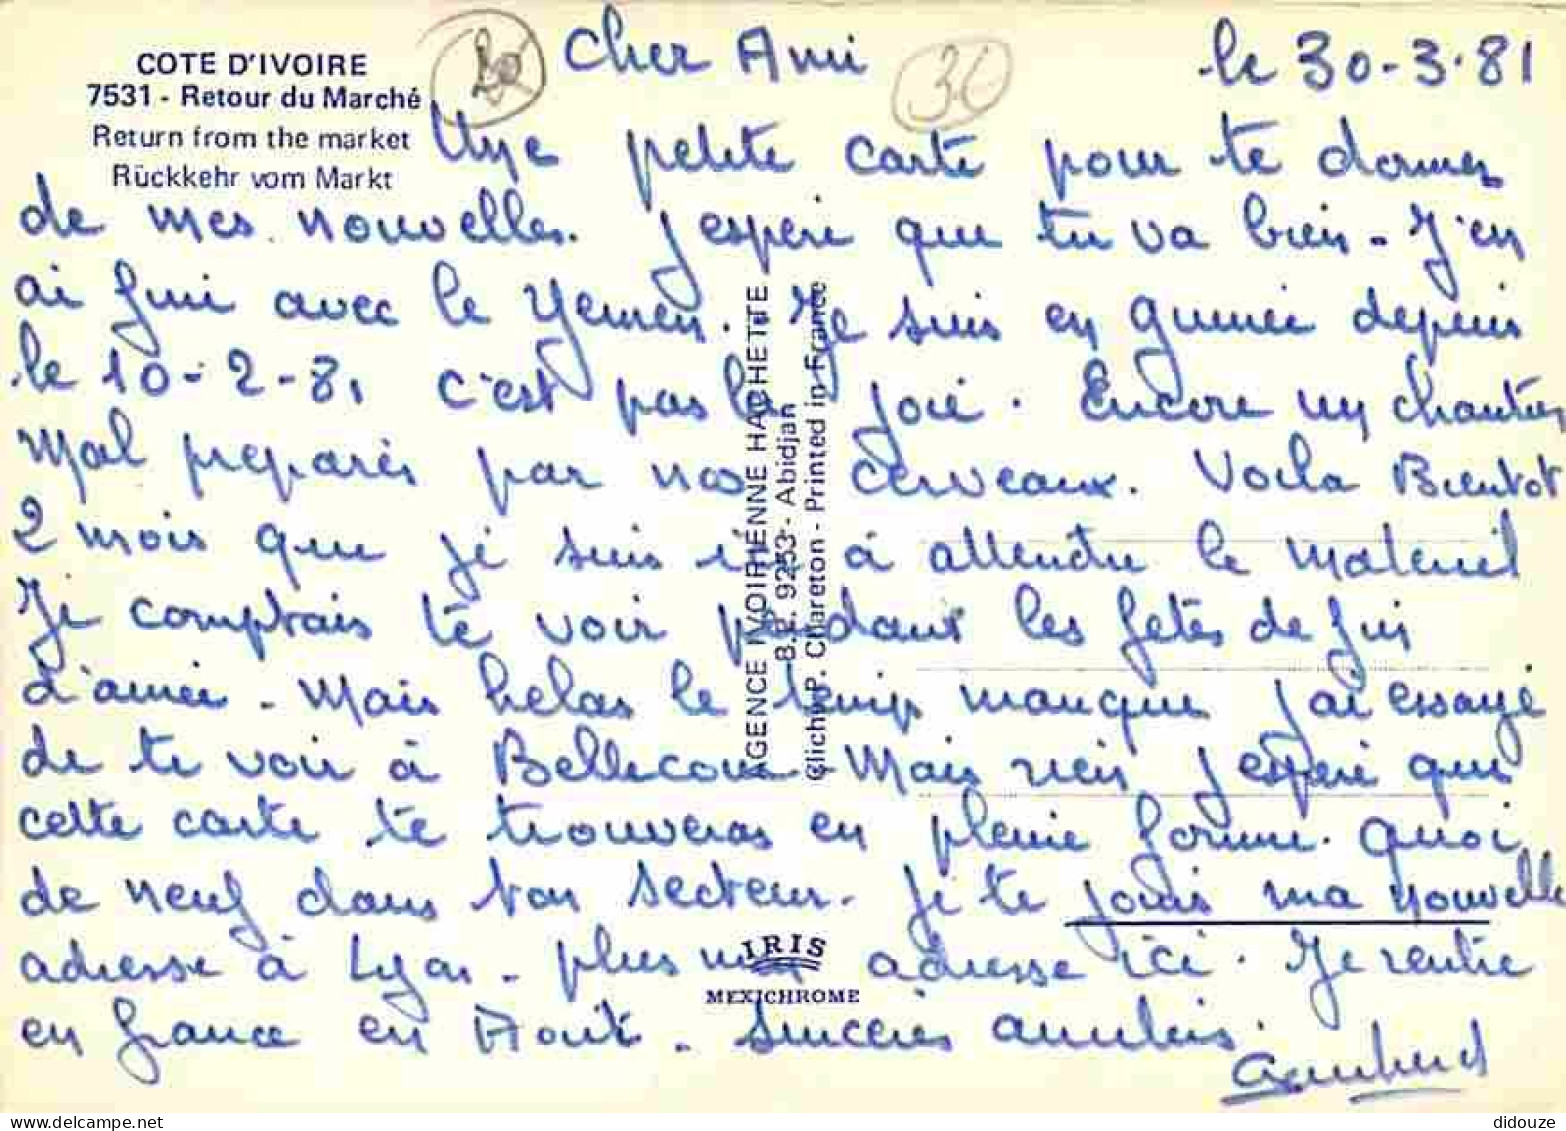 COTE D'IVOIRE
7531 - Retour du Marché
Return from the market
Rückkehr vom Markt
30
Cher Ami
le 30-3-81
Une petite carte pour te donner
de mes nouvelles. J'espère que tu va bien - J'en
ai fini avec le Yemen. Je suis en guinée depuis
le 10-2-81 c'est pas la joie. Encore un chantier
mal préparés par nos cerveaux. Voila Bientot
2 mois que je suis ici à attendre le materiel
Je comptais te voir pendant les fêtes de fin
d'année - Mais helas le temps manque j'ai essayé
de te voir à Bellecour Mais rien j'espère que
cette carte te trouveras en pleine forme. Quoi
de neuf dans ton secteur. Je te joins ma nouvelle
adresse à Lyon - plus mon adresse ici. Je rentre
en france en Août - Sincères amitiés.
AGENCE IVOIRIENNE HACHETTE
B.P. 9253 - Abidjan
Cliché P. Chareton - Printed in France
IRIS
MEXICHROME
www.delcampe.net
didouze